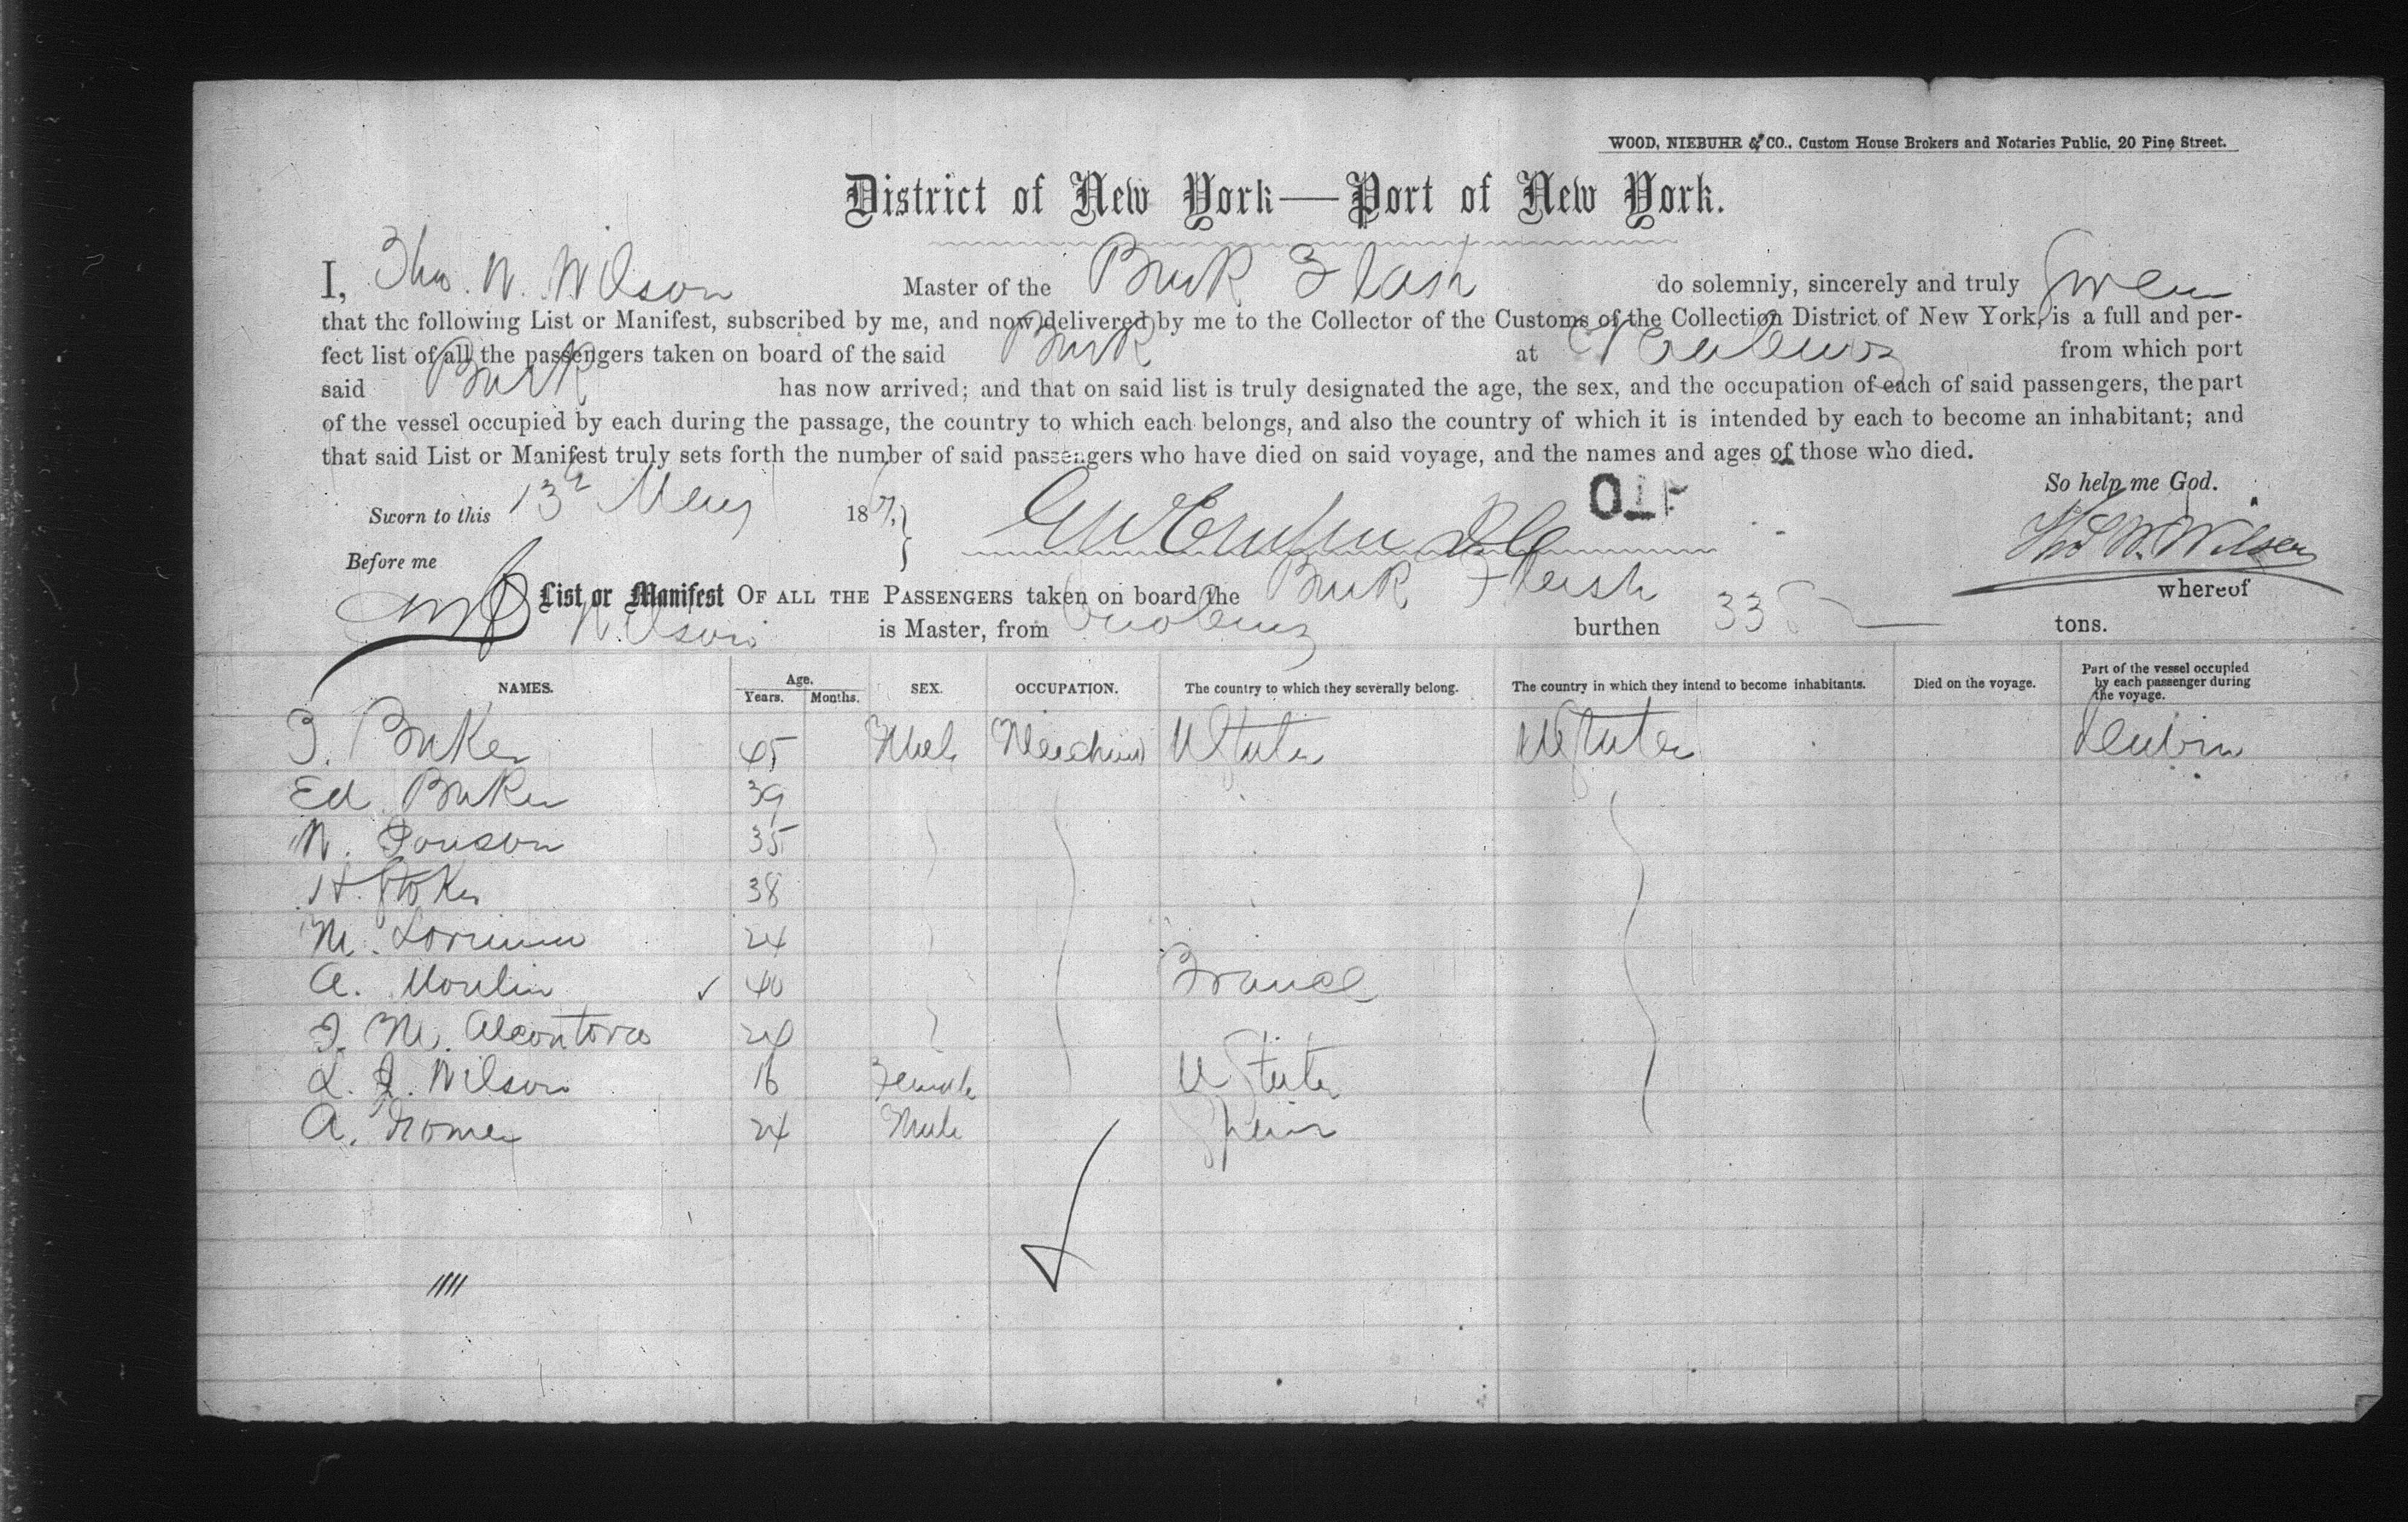 WOOD, NIEBUHR & CO., Custom House Brokers and Notaries Public, 20 Pine Street.
District of New York—Port of New York.
I, Thos. W. Wilson Master of the Bark Flash do solemnly, sincerely and truly Swear
that the following List or Manifest, subscribed by me, and now delivered by me to the Collector of the Customs of the Collection District of New York, is a full and per-
fect list of all the passengers taken on board of the said Bark at from which port
said Bark has now arrived; and that on said list is truly designated the age, the sex, and the occupation of each of said passengers, the part
of the vessel occupied by each during the passage, the country to which each belongs, and also the country of which it is intended by each to become an inhabitant; and
that said List or Manifest truly sets forth the number of said passengers who have died on said voyage, and the names and ages of those who died.
So help me God.
Sworn to this 13th May 1867,
Thos W. Wilson
Before me
List or Manifest OF ALL THE PASSENGERS taken on board the Bark Flash whereof
Wilson is Master, from burthen tons.
NAMES. Age. Years. Months. SEX. OCCUPATION. The country to which they severally belong. The country in which they intend to become inhabitants. Died on the voyage. Part of the vessel occupied by each passenger during the voyage.
Baker 45 Male Merchant U States U States Cabin
Ed. Baker 39
W. 35
H. Stoker 38
M. 24
A. Moulin 40 France
M. Alcontora 24
L. J. Wilson 16 Female U States
A. 24 Male Spain